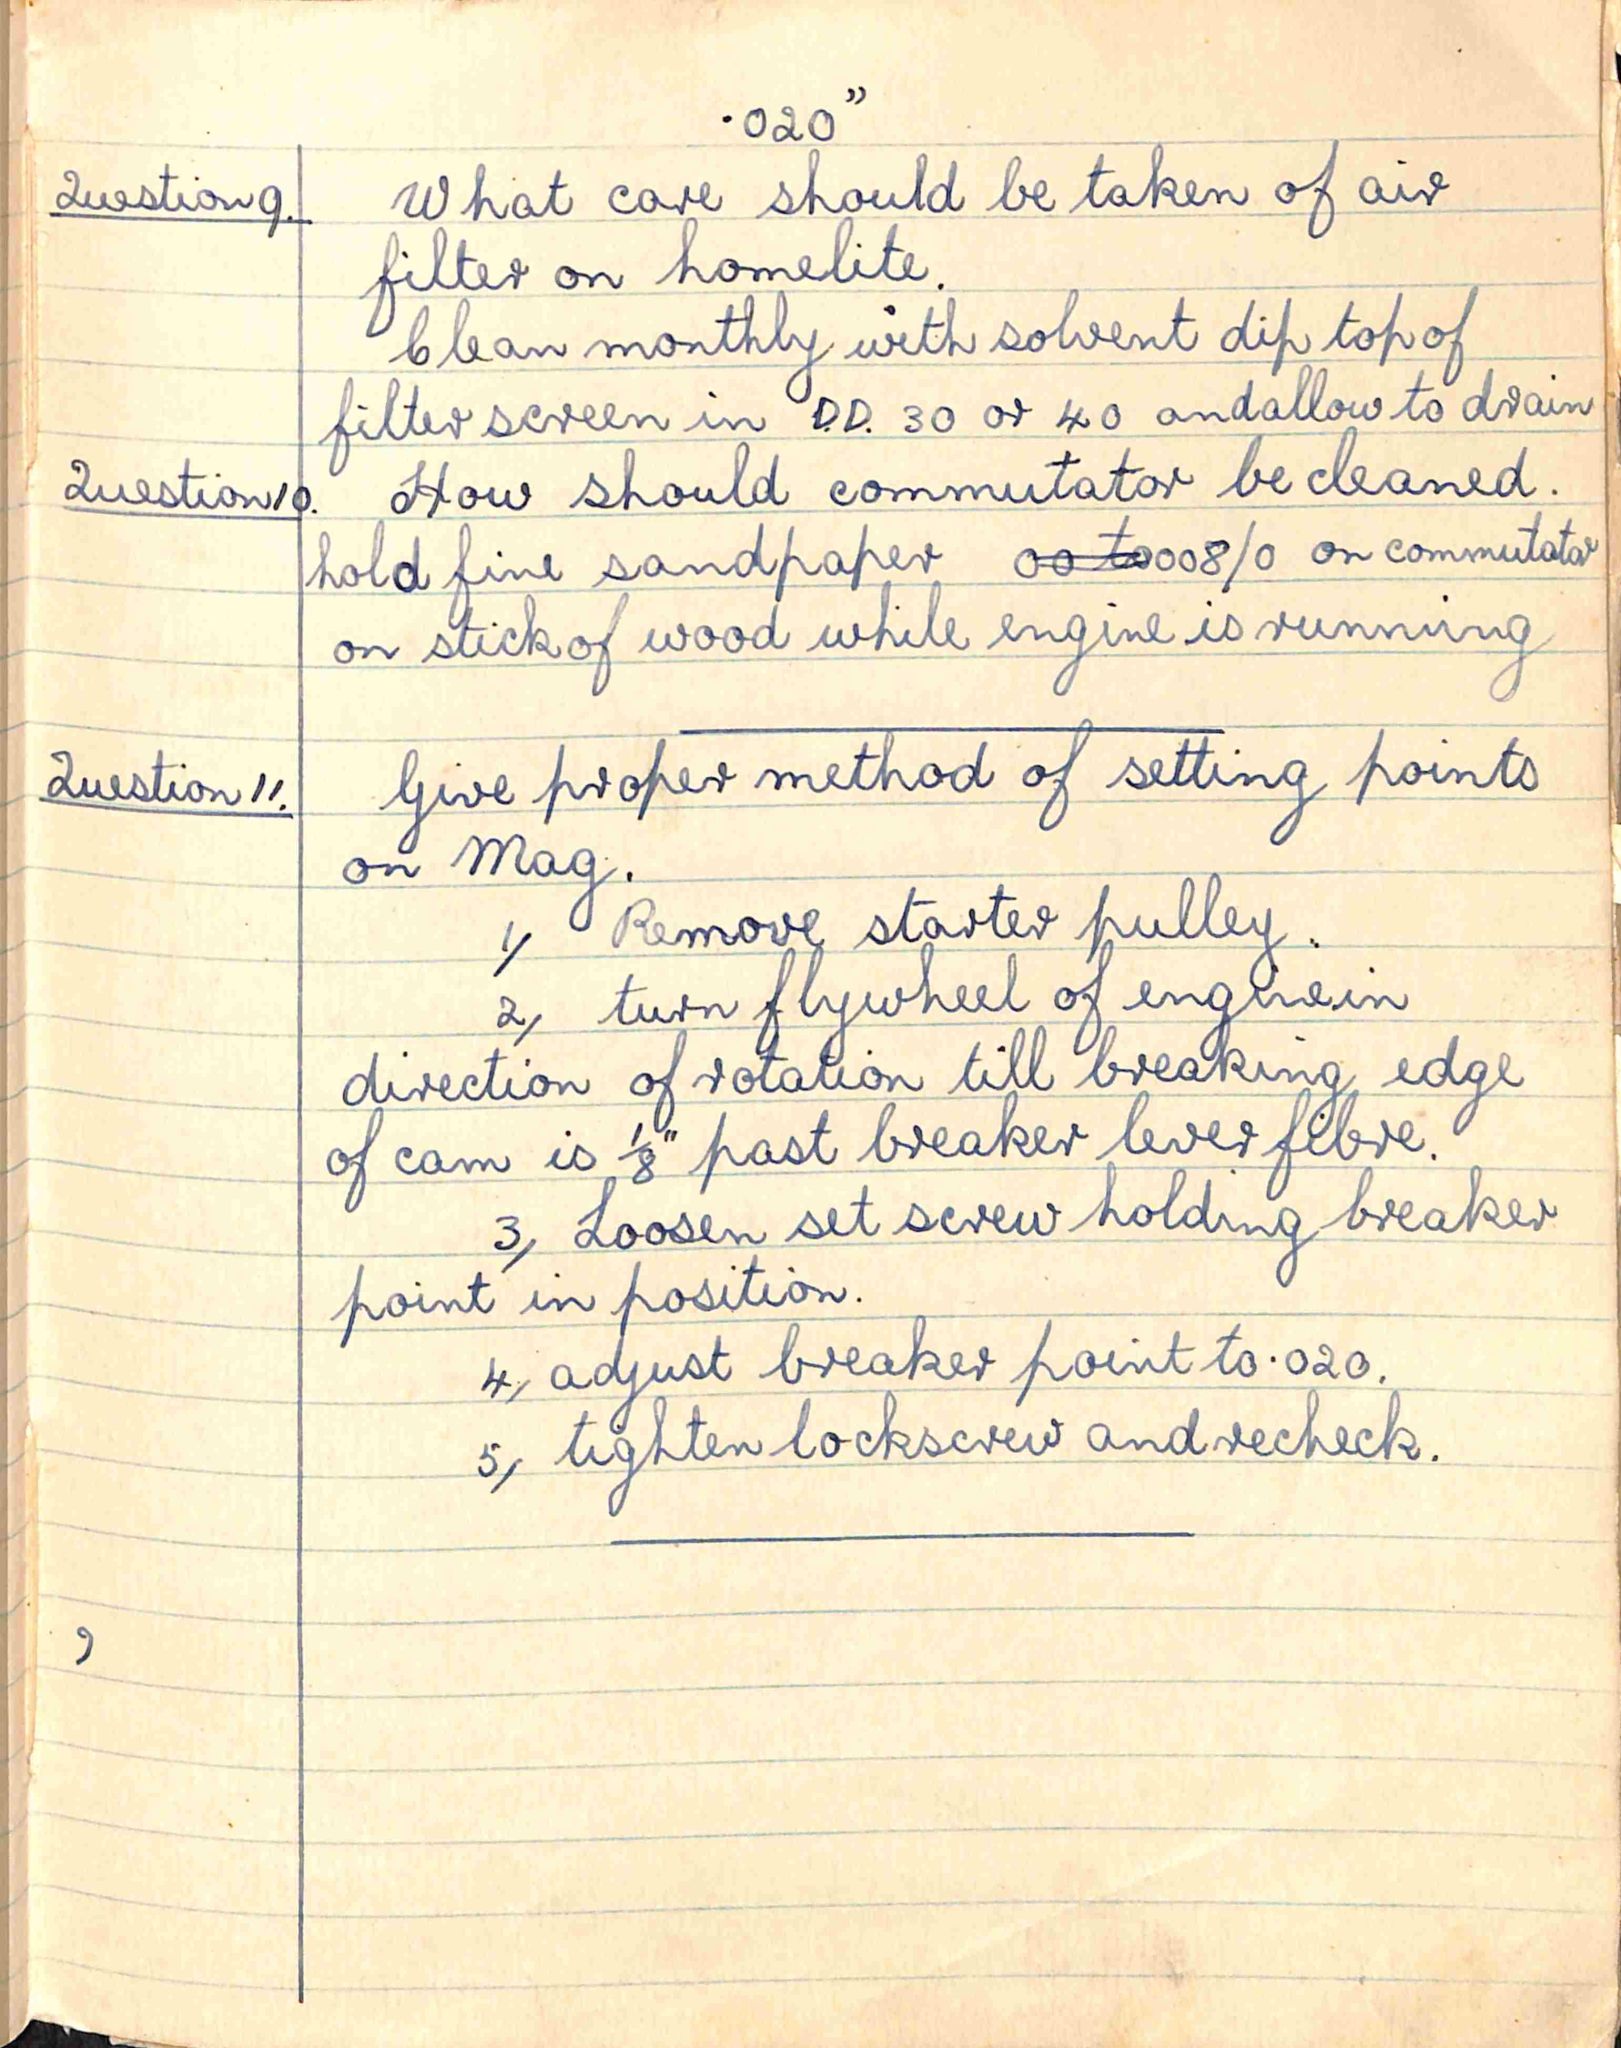 .020"
Question 9. What care should be taken of air
filter on homelite.
Clean monthly with solvent dip top of
filter screen in D.D. 30 or 40 and allow to drain
Question 10. How should commutator be cleaned.
hold fine sandpaper 00 to 008/0 on commutator
on stick of wood while engine is running
Question 11. Give proper method of setting points
on Mag.
1, Remove starter pulley.
2, turn flywheel of engine in
direction of rotation till breaking edge
of cam is 1/8" past breaker lever fibre.
3, Loosen set screw holding breaker
point in position.
4, adjust breaker point to .020.
5, tighten lockscrew and recheck.